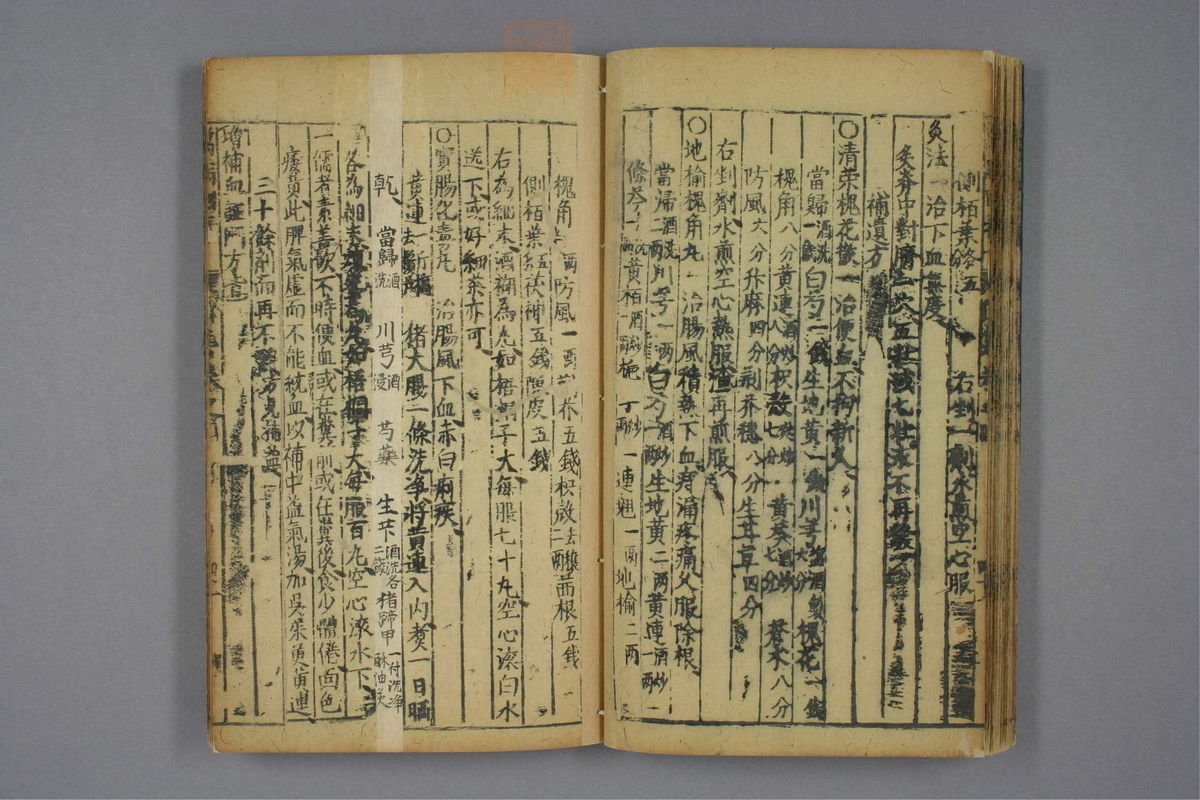 側栢葉各五分 右剉一劑水煎空心服
灸法 治下血無度
灸脊中對臍 五壯或七壯永不再發
補遺方
○清榮槐花散 治便血不拘新久
當歸酒洗一錢 白芍一錢 生地黃一錢 川芎七分 塩酒製槐花一錢
槐角八分 黃連酒炒八分 枳殼炒七分 黃芩酒炒七分 蒼术八分
防風六分 升麻四分 荊芥穗八分 生甘草四分
右剉劑水煎空心熱服渣再煎服
○地榆槐角丸 治腸風積熱下血痔漏疼痛久服除根
當歸酒洗二兩 川芎一兩 白芍酒炒一兩 生地黃二兩 黃連酒炒一兩
條芩 黃栢酒炒一兩 梔子炒一兩 連翹一兩 地榆二兩
槐角 兩 防風一兩 荊芥五錢 枳殼去穰二兩 茜根五錢
側栢葉五錢 茯神五錢 陳皮五錢
右為細末酒糊為丸如梧桐子大每服七十丸空心滾白水
送下或好細茶亦可
○實腸化毒丸 治腸風下血赤白痢疾
黃連去 猪大腸二條洗淨將黃連入內煮一日晒
乾 當歸酒洗 川芎酒浸 芍藥 生芐酒洗各二錢 猪蹄甲一付洗淨酥油炙
各為細末 為丸如梧桐子大每服百丸空心滾水下
一儒者素善飲不時便血或在糞前或在糞後食少體倦面色
痿黃此脾氣虛而不能統血以補中益氣湯加吳茱萸黃連
三十餘劑而再不發 方見補益
增補血證門方